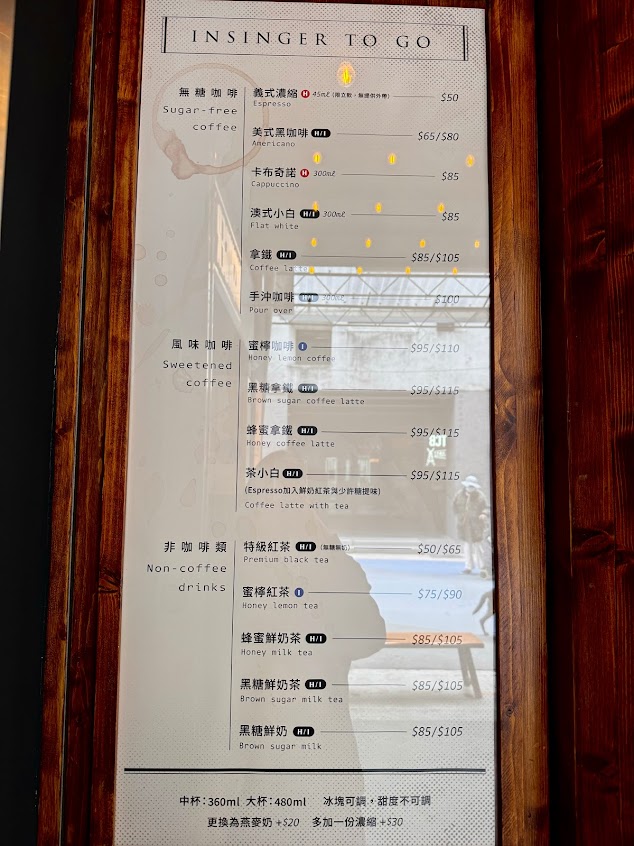 INSINGER TO GO
無糖咖啡
Sugar-free
coffee
義式濃縮 H 45ml (限立飲,無提供外帶) $50
Espresso
美式黑咖啡 H/I $65/$80
Americano
卡布奇諾 H 300ml $85
Cappuccino
澳式小白 H/I 300ml $85
Flat white
拿鐵 H/I $85/$105
Coffee latte
手沖咖啡 H/I 300ml $100
Pour over
風味咖啡
Sweetened
coffee
蜜檸咖啡 I $95/$110
Honey lemon coffee
黑糖拿鐵 H/I $95/$115
Brown sugar coffee latte
蜂蜜拿鐵 H/I $95/$115
Honey coffee latte
茶小白 H/I $95/$115
(Espresso加入鮮奶紅茶與少許糖提味)
Coffee latte with tea
非咖啡類
Non-coffee
drinks
特級紅茶 H/I (無糖無奶) $50/$65
Premium black tea
蜜檸紅茶 I $75/$90
Honey lemon tea
蜂蜜鮮奶茶 H/I $85/$105
Honey milk tea
黑糖鮮奶茶 H/I $85/$105
Brown sugar milk tea
黑糖鮮奶 H/I $85/$105
Brown sugar milk
中杯:360ml 大杯:480ml 冰塊可調,甜度不可調
更換為燕麥奶 +$20 多加一份濃縮 +$30